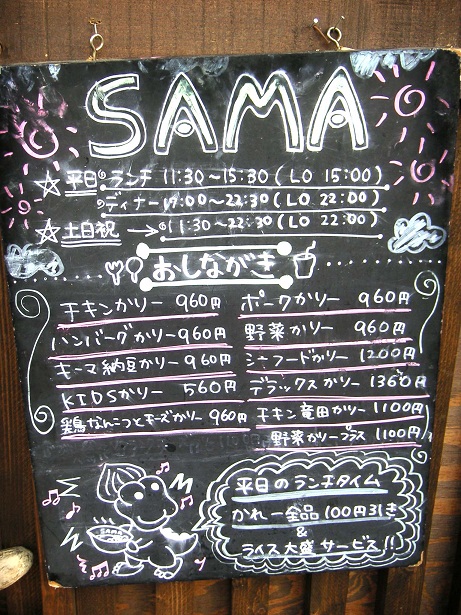 SAMA
☆平日 ランチ 11:30～15:30 (LO 15:00)
ディナー 17:00～22:30 (LO 22:00)
☆土日祝 → 11:30～22:30 (LO 22:00)
おしながき
チキンカリー 960円
ハンバーグカリー 960円
キーマ納豆カリー 960円
KIDSカリー 560円
鶏なんこつとチーズカリー 960円
ポークカリー 960円
野菜カリー 960円
シーフードカリー 1200円
デラックスカリー 1360円
チキン竜田カリー 1100円
野菜カリープラス 1100円
平日のランチタイム
かれー全品100円引き
&
ライス大盛サービス!!
SAMA